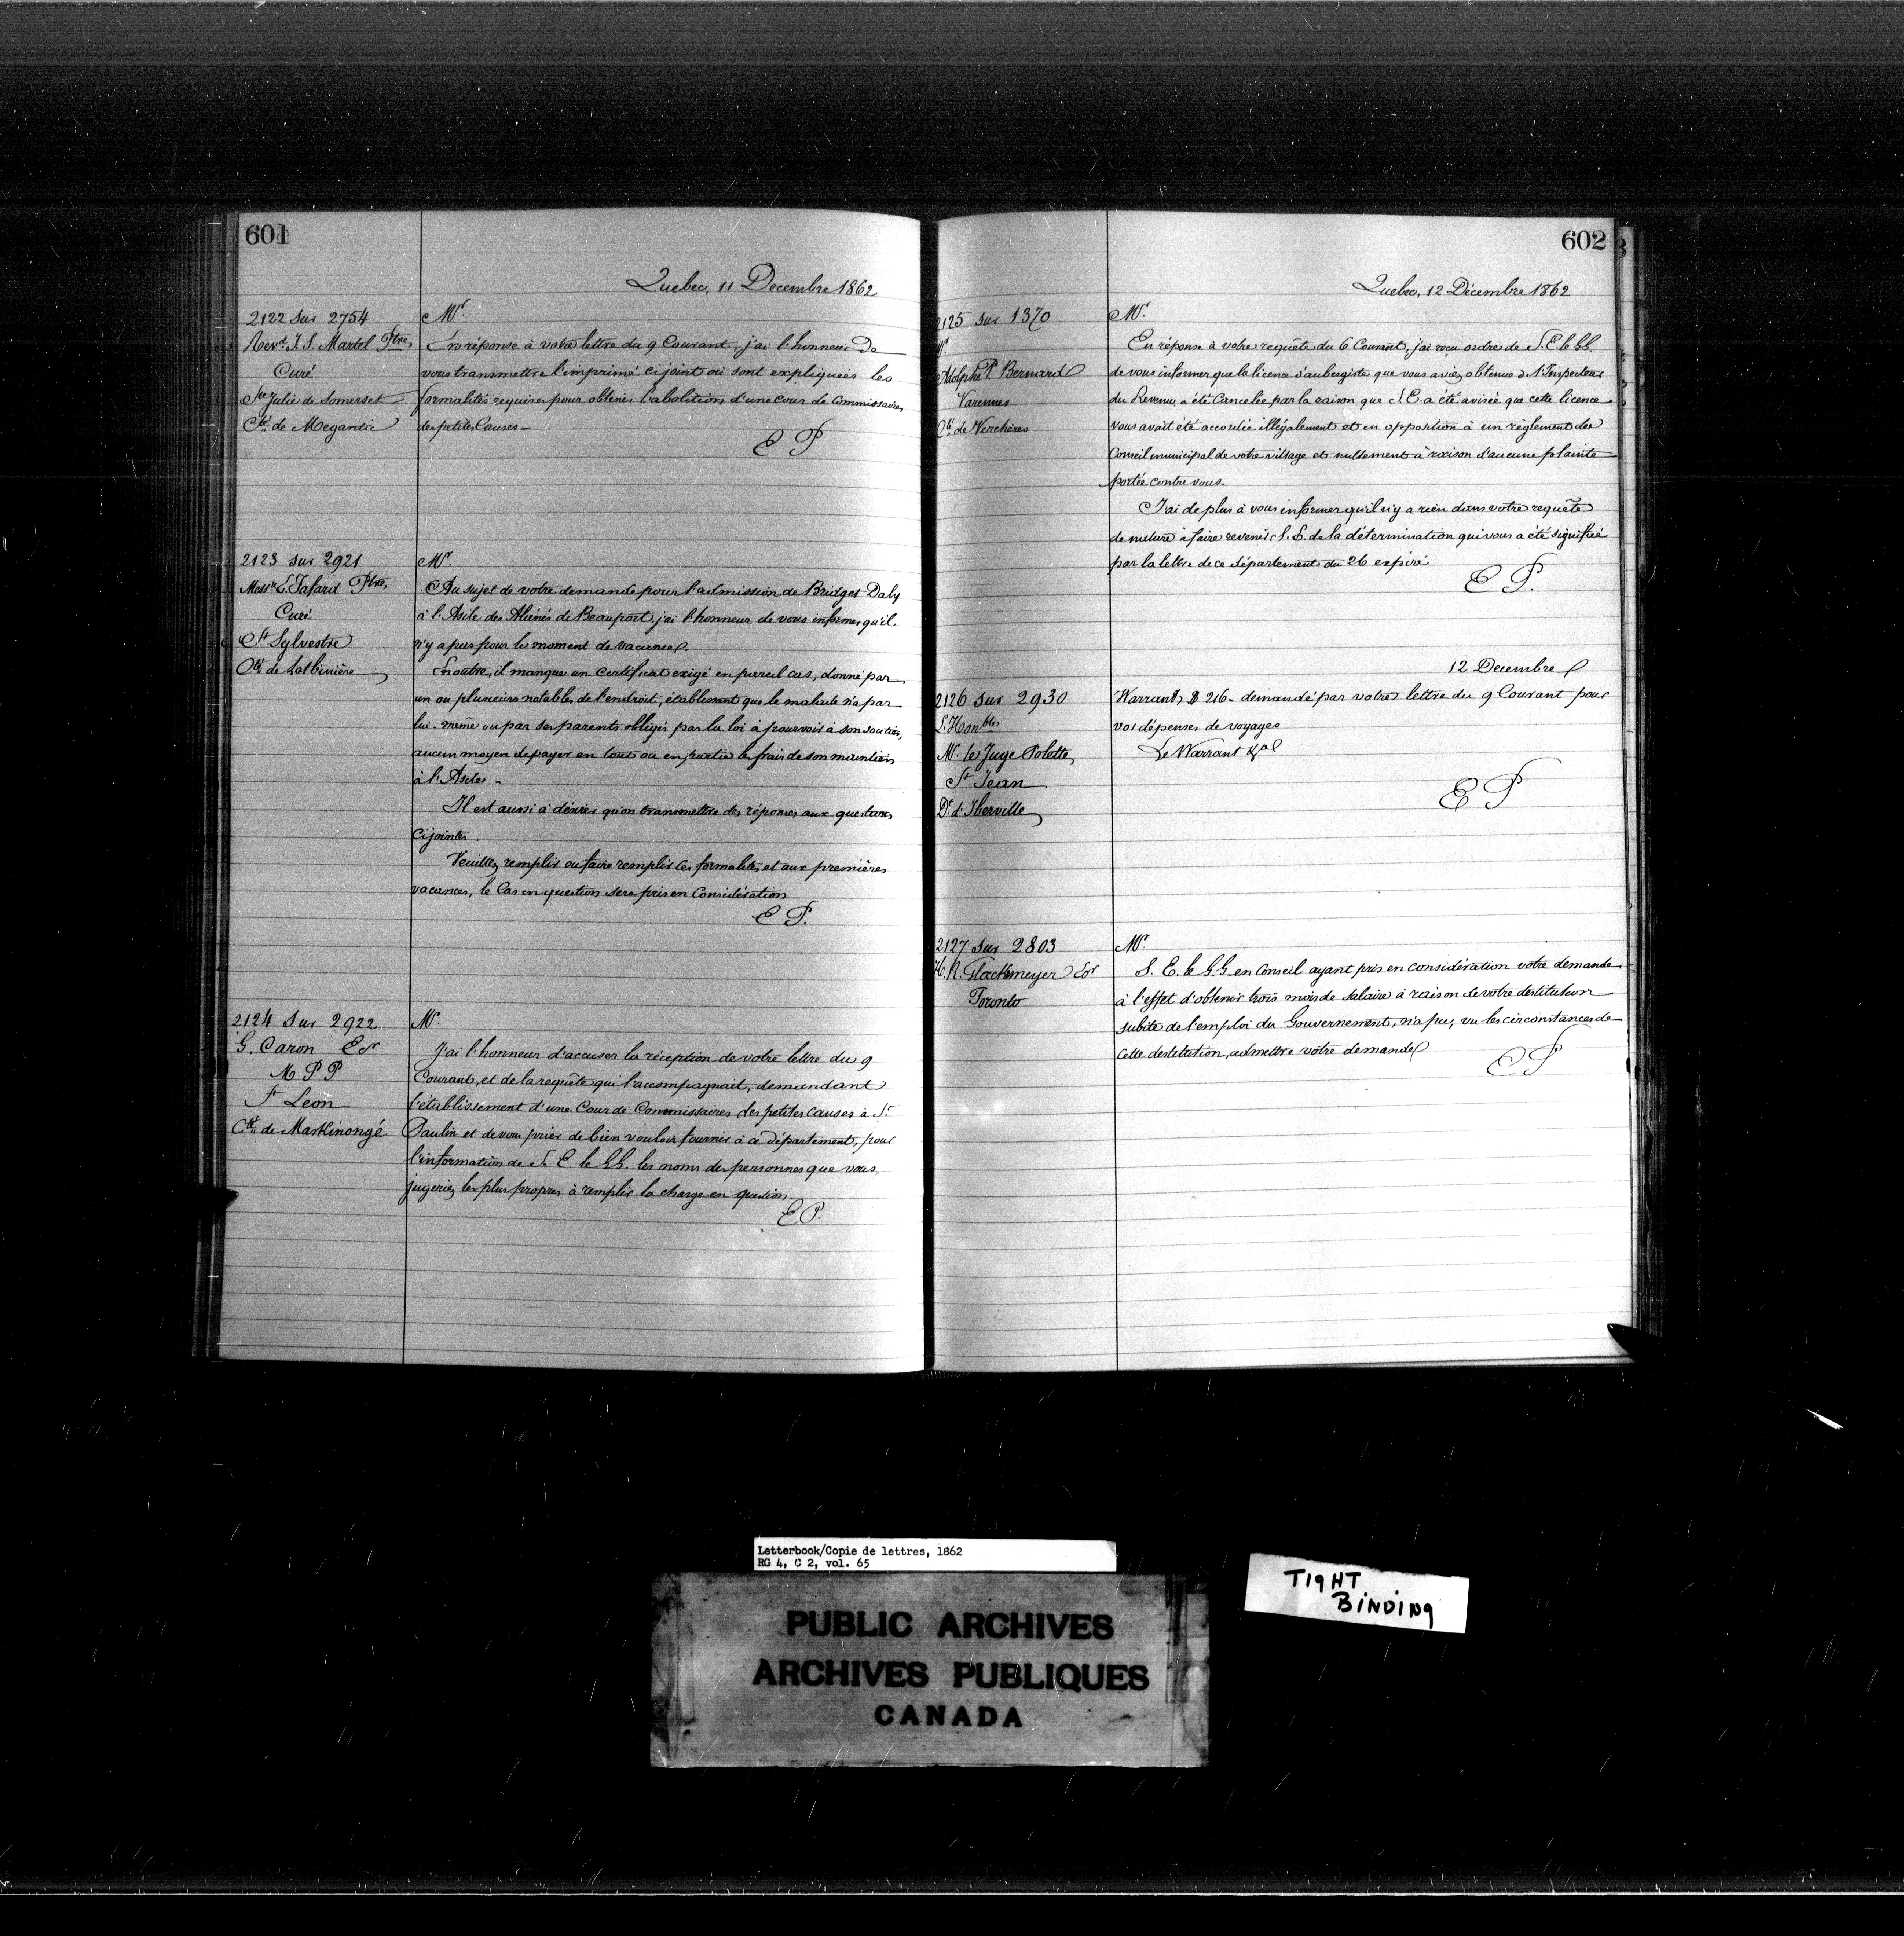 601
Quebec, 11 Decembre 1862
2122 sur 2754
Revd. J. S. Martel Ptre
Curé
Ste Julie de Somerset
Cté de Megantic
Mr.
En réponse à votre lettre du 9 Courant, j'ai l'honneur de
vous transmettre l'imprimé ci joint où sont expliquées les
formalités requises pour obtenir l'abolition d'une cour de Commissaires
des petites Causes —
E P
2123 sur 2921
Messr. E. Fafard Ptre
Curé
St Sylvestre
Cté de Lotbinière
Mr.
Au sujet de votre demande pour l'admission de Bridget Daly
à l'Asile des Aliénés de Beauport j'ai l'honneur de vous informer qu'il
n'y a pas pour le moment de vacance.
En outre, il manque un certificat exigé en pareil cas, donné par
un ou plusieurs notables de l'endroit, établissant que le malade n'a par
lui-même ou par ses parents obligés par la loi à pourvoir à son soutien,
aucun moyen de payer en tout ou en partie les frais de son maintien
à l'Asile —
Il est aussi à désirer qu'on transmettre des réponses aux questions
ci jointes.
Veuillez remplir ou faire remplir ces formalités et aux premières
vacances, le Cas en question sera pris en Considération
E P.
2124 Sur 2922
G. Caron Ecr
M P P
St Leon
Cté de Maskinongé
Mr.
J'ai l'honneur d'accuser la réception de votre lettre du 9
Courant, et de la requête qui l'accompagnait, demandant
l'établissement d'une Cour de Commissaires des petites causes à St
Paulin et de vous prier de bien vouloir fournir à ce département, pour
l'information de S. E. le G.G. les noms des personnes que vous
jugeriez les plus propres à remplir la charge en question.
E P.
602
Quebec, 12 Décembre 1862
2125 sur 1370
Mr.
Adolphe P. Bernard
Varennes
Cté de Verchères
Mr.
En réponse à votre requête du 6 Courant, j'ai reçu ordre de S. E. le G.G.
de vous informer que la licence d'aubergiste que vous aviez obtenue de l'Inspecteur
du Revenu a été Cancelée par la raison que S. E. a été avisée que cette licence
vous avait été accordée illégalement et en opposition à un règlement du
Conseil municipal de votre village et nullement à raison d'aucune plainte
portée contre vous.
J'ai de plus à vous informer qu'il n'y a rien dans votre requête
de nature à faire revenir S. E. de la détermination qui vous a été signifiée
par la lettre de ce département du 26 expiré
E P.
12 Decembre
2126 sur 2930
L'Honble
Mr. le Juge Polette
St Jean
Dt d'Iberville
Warrant, $ 216 - demandé par votre lettre du 9 Courant pour
vos dépenses de voyage
Le Warrant &a
E P
2127 sur 2803
H. R. Glackmeyer Ecr
Toronto
Mr.
S. E. le G.G en Conseil ayant pris en considération votre demande
à l'effet d'obtenir trois mois de salaire à raison de votre destitution
subite de l'emploi du Gouvernement, n'a pu, vu les circonstances de
cette destitution, admettre votre demande
E P
Letterbook/Copie de lettres, 1862
RG 4, C 2, vol. 65
TIGHT
BINDING
PUBLIC ARCHIVES
ARCHIVES PUBLIQUES
CANADA